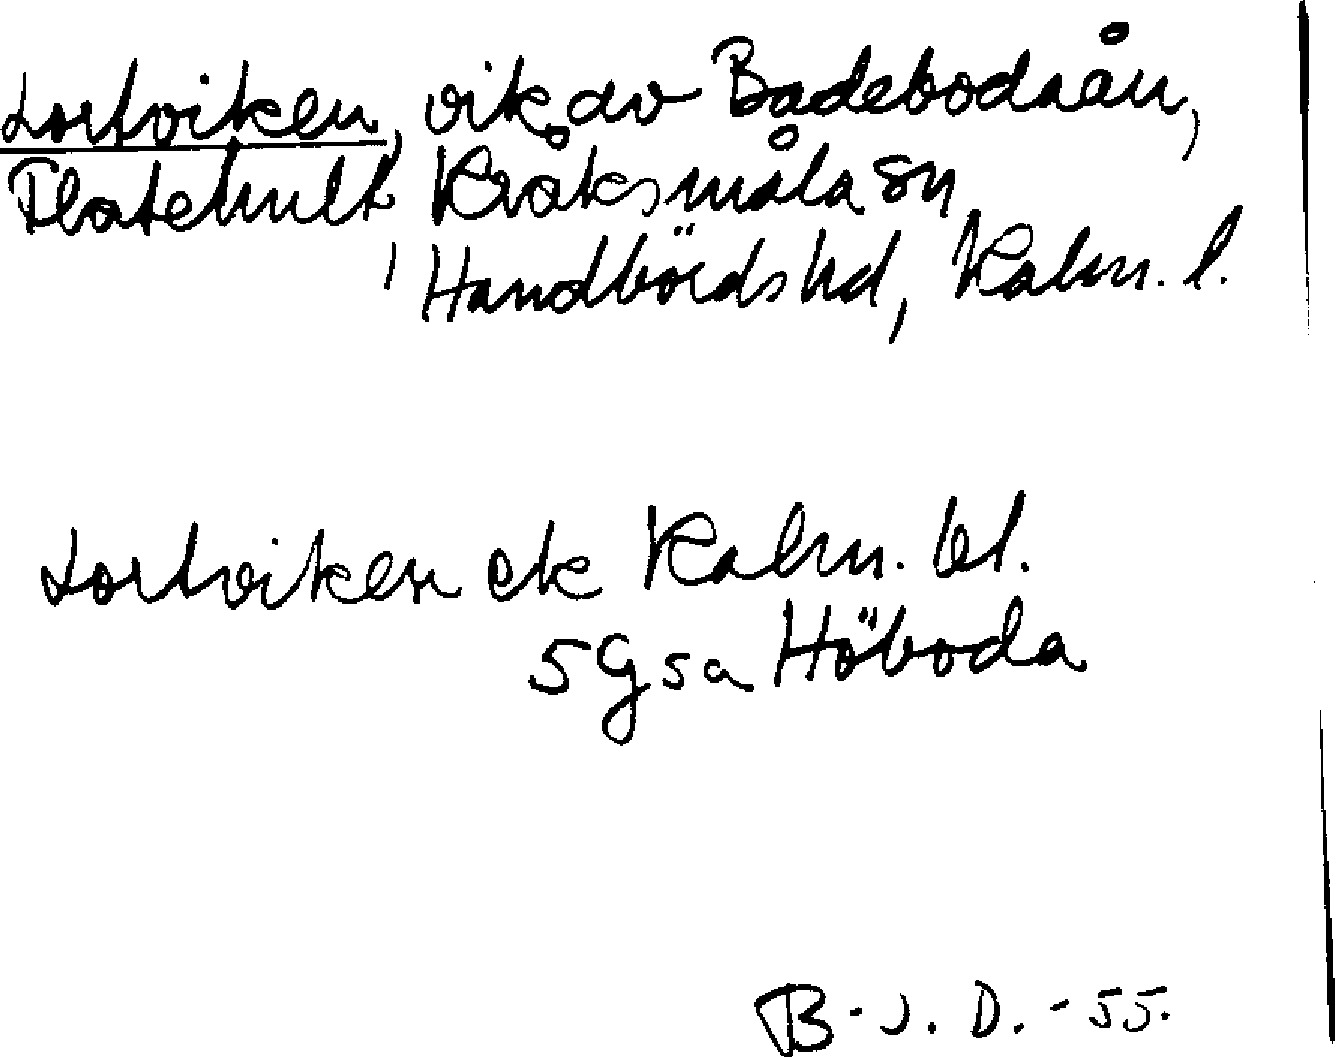 Lortviken, vik av Badebodaån,
Flatehult, Kråksmåla sn
Handbörds hd, Kalm. l.
Lortviken ek Kalm. bl.
5G5a Höboda
B-J. D. -55.